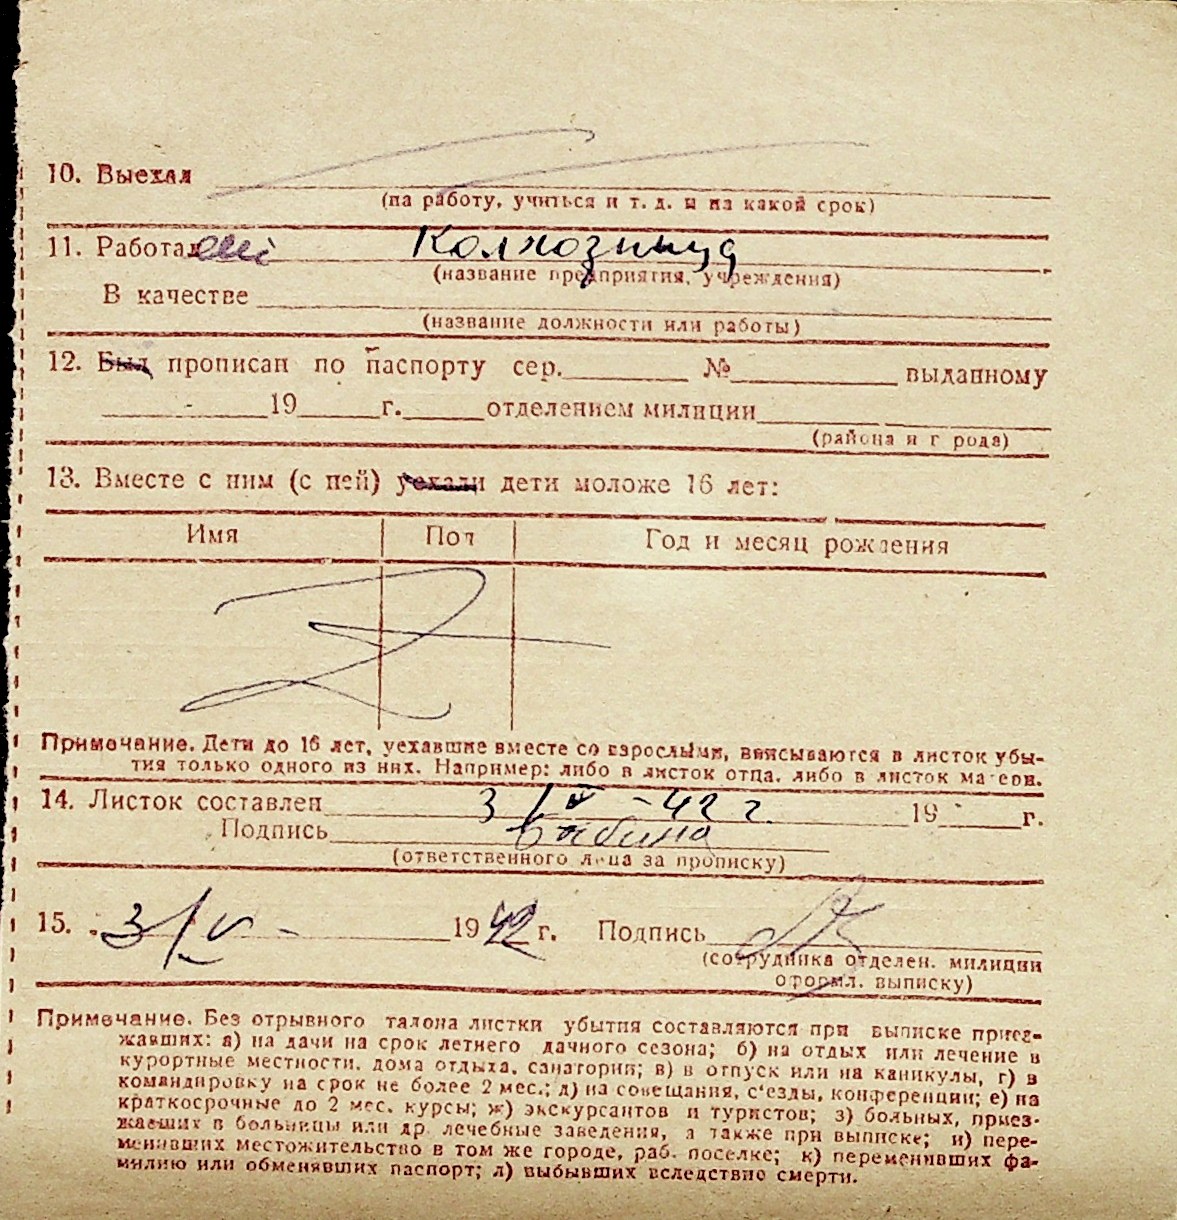 10. Выехал
(на работу, учиться и т. д. и на какой срок)
11. Работал Колхозница
(название предприятия, учреждения)
В качестве
(название должности или работы)
12. Был прописан по паспорту сер. № выданному
19 г. отделением милиции
(района и города)
13. Вместе с ним (с ней) уехали дети моложе 16 лет:
Имя Пол Год и месяц рождения
Примечание. Дети до 16 лет, уехавшие вместе со взрослыми, вписываются в листок убы-
тия только одного из них. Например: либо в листок отца, либо в листок матери.
14. Листок составлен 3/IV-42 г. 19 г.
Подпись
(ответственного лица за прописку)
15. 3/V- 1942 г. Подпись
(сотрудника отделен. милиции
оформл. выписку)
Примечание. Без отрывного талона листки убытия составляются при выписке приез-
жавших: а) на дачи на срок летнего дачного сезона; б) на отдых или лечение в
курортные местности, дома отдыха, санатории; в) в отпуск или на каникулы, г) в
командировку на срок не более 2 мес.; д) на совещания, с'езды, конференции; е) на
краткосрочные до 2 мес. курсы; ж) экскурсантов и туристов; з) больных, приез-
жавших в больницы или др. лечебные заведения, а также при выписке; и) пере-
менивших местожительство в том же городе, раб. поселке; к) переменивших фа-
милию или обменявших паспорт; л) выбывших вследствие смерти.